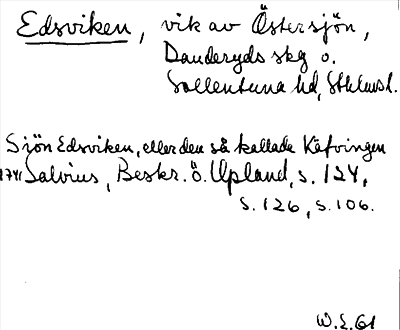 Edsviken, vik av Östersjön,
Danderyds skg o.
Sollentuna hd, Sthlmsl.
Sjön Edsviken, eller den så kallade Käfvingen
1741 Salvius, Beskr. ö. Upland, s. 124,
s. 126, s. 106.
W.E. 61